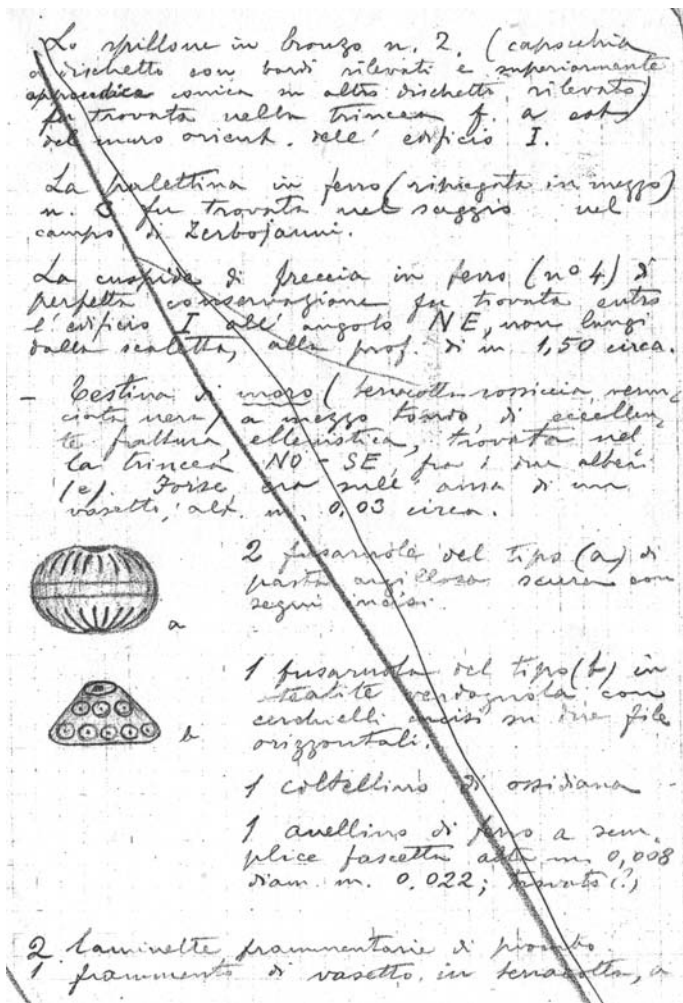 Lo spillone in bronzo n. 2. (capocchia
a dischetto con bordi rilevati e superiormente
appendice conica su altro dischetto rilevato)
fu trovata nella trincea f. a est
del muro orient. dell' edificio I.
La palettina in ferro (ripiegata in mezzo)
n. 3 fu trovata nel saggio nel
campo di Zerbojanni.
La cuspide di freccia in ferro (nº 4) di
perfetta conservazione fu trovata entro
l'edificio I all' angolo NE, non lungi
dalla scaletta, alla prof. di m 1,50 circa.
- Testina di moro (terracotta rossiccia, verni
ciata nera) a mezzo tondo, di eccellen
te fattura ellenistica, trovata nel
la trincea NO - SE, fra i due alberi
(e). Forse era sull' ansa di un
vasetto, alt. m. 0,03 circa.
2 fusaruole del tipo (a) di
pasta argillosa scura con
segni incisi.
a
1 fusaruola del tipo (b) in
steatite verdognola con
cerchielli incisi su due file
orizzontali.
b
1 coltellino di ossidiana
1 anellino di ferro a sem
plice fascetta alta m. 0,008
diam. m. 0,022; trovato (?)
2 laminette frammentarie di piombo
1 frammento di vasetto in terracotta, a